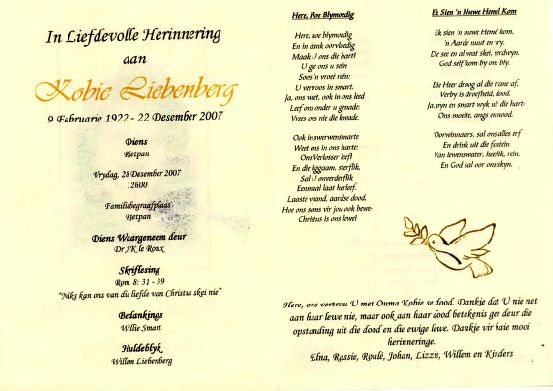 In Liefdevolle Herinnering
aan
Kobie Liebenberg
9 Februarie 1922 - 22 Desember 2007
Diens
Rietpan
Vrydag, 28 Desember 2007
Familiebegraafplaas
Rietpan
Diens Waargeneem deur
Dr JK le Roux
Skriflesing
Rom. 8: 31 - 39
"Niks kan ons van die liefde van Christus skei nie"
Belankings
Willie Smart
Huldeblyk
Willem Liebenberg
Here, hoe Blymoedig
Here, hoe blymoedig
En in dank oorvloedig
Maak U ons die hart!
U gee ons u seën
Soos 'n vroeë reën:
U vertroos in smart.
Ja, ons weet, ook in ons leed
Leef ons onder u genade:
Vrees ons nie die kwade.
Ook in swerwensware
Weet ons in ons harte:
Ons Verlosser leef!
En die liggaam, sterflik,
Sal U onverderflik
Eenmaal laat herleef.
Laaste vyand, aardse dood,
Hoe ons soms vir jou ook bewe-
Christus is ons lewe!
Ek Sien 'n Nuwe Hemel Kom
Ek sien 'n nuwe hemel kom,
'n Aarde nuut en vry.
De see en al wat skei, verdwyn.
God self kom by ons bly.
Die Heer droog al die trane af,
Verby is droefheid, dood.
Ja, pyn en smart wyk uit die hart-
Ons moeite, angs en nood.
Oorwinnaars, sal ons alles erf
En drink uit die fontein
Van lewenswater, heerlik, rein.
En God sal oor ons skyn.
Here, ons vertrou U met Ouma Kobie se dood. Dankie dat U nie net
aan haar lewe nie, maar ook aan haar dood betekenis gee deur die
opstanding uit die dood en die ewige lewe. Dankie vir baie mooi
herinneringe.
Elna, Rassie, Roulé, Johan, Lizzie, Willem en Kinders